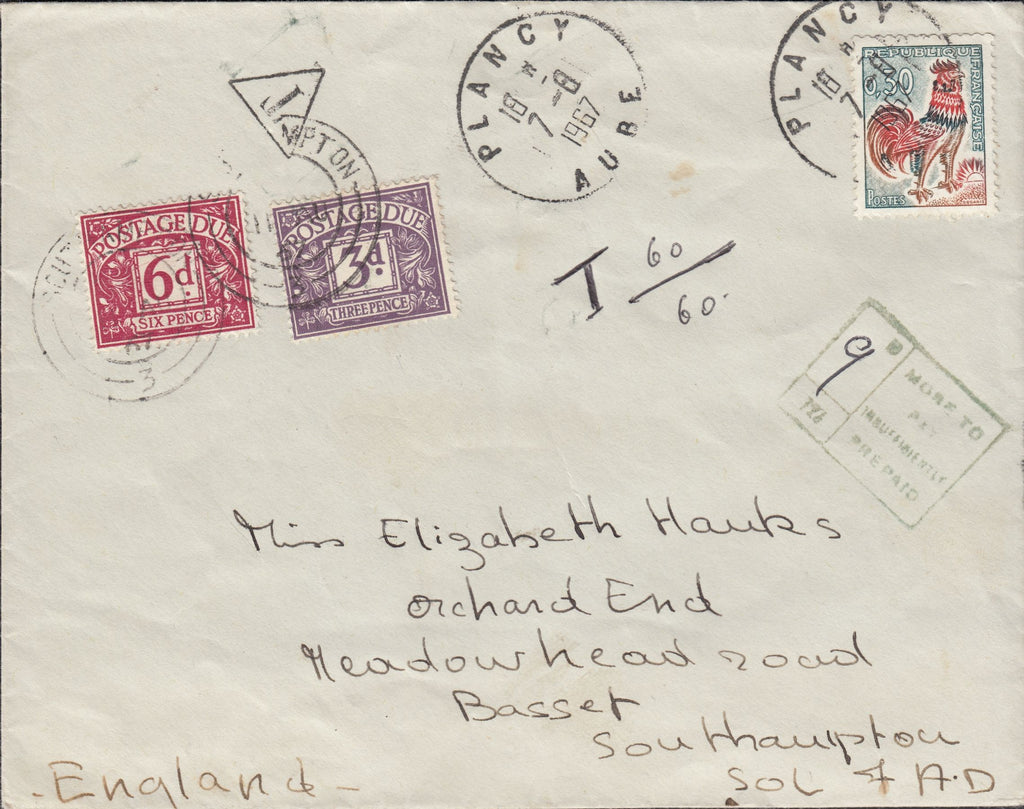 PLANCY
18 -8
7 1967
AUBE
PLANCY
18
7
RÉPUBLIQUE FRANÇAISE
0,30
POSTES
T
MPTON
POSTAGE DUE
6d
SIX PENCE
POSTAGE DUE
3d.
THREE PENCE
3
T 60/60
9
MORE TO
PAY
INSUFFICIENTLY
PREPAID
Miss Elizabeth Hawks
Orchard End
Meadowhead road
Basset
Southampton
SOL 7 A.D
- England -